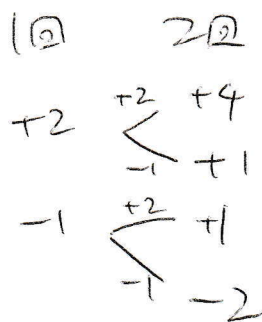 1回 2回
+2 +4
+2
-1 +1
-1 +2 +1
-1 -2